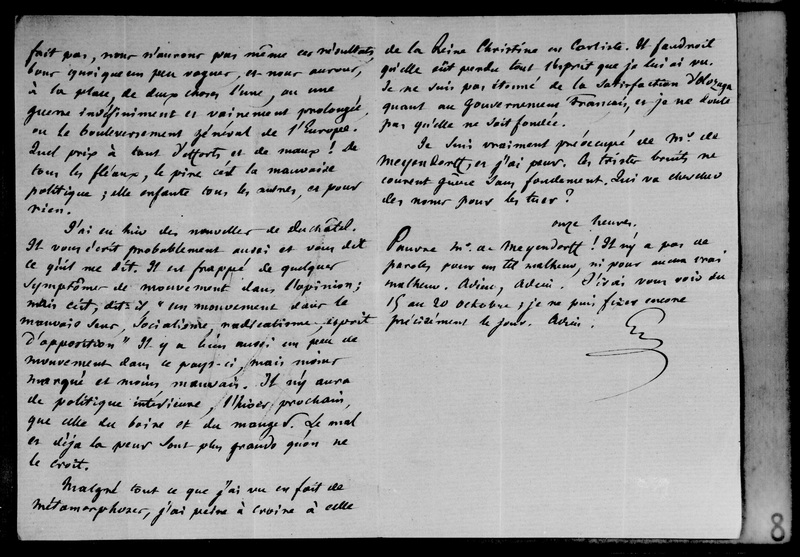 fait pas, nous n'aurons pas même ces résultats,
pour quoique un peu vagues, et nous aurons,
à la place, de deux choses l'une, ou une
guerre indéfiniment et vainement prolongée,
ou le bouleversement général de l'Europe.
Quel prix à tant d'efforts et de maux ! De
tous les fléaux, le pire c'est la mauvaise
politique ; elle enfante tous les autres, et pour
rien.
J'ai eu hier des nouvelles de Duchâtel.
Il vous écrit probablement aussi et vous dit
ce qu'il me dit. Il est frappé de quelques
symptômes de mouvement dans l'opinion ;
mais c'est, dit-il "un mouvement dans le
mauvais sens, socialisme, radicalisme, esprit
d'opposition" Il y a bien aussi un peu de
mouvement dans ce pays-ci, mais moins
marqué et moins mauvais. Il n'y aura
de politique intérieure, l'hiver prochain,
que celle du boire et du manger. Le mal
et déja la peur sont plus grands qu'on ne
le croit.
Malgré tout ce que j'ai vu en fait de
métamorphoses, j'ai peine à croire à celle
de la Reine Christine en Carliste. Il faudroit
qu'elle eût perdu tout l'esprit que je lui ai vu.
Je ne suis pas étonné de la satisfaction d'Olozaga
quant au gouvernement Français, et je ne doute
pas qu'elle ne soit fondée.
Je suis vraiment préoccupé de Mr. de
Meyendorff, et j'ai peur. Ces tristes bruits ne
courent guère sans fondement. Qui va chercher
des noms pour les tuer ?
onze heures.
Pauvre Mr. de Meyendorff ! Il n'y a pas de
paroles pour un tel malheur, ni pour aucun vrai
malheur. Adieu, Adieu. J'irai vous voir du
15 au 20 octobre ; je ne puis fixer encore
précisément le jour. Adieu.
8